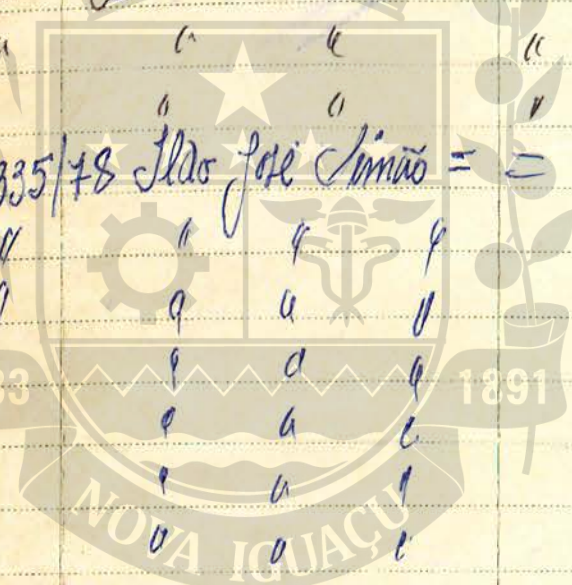 " " "
" " "
335/78 Ildo José Simão = =
" " " "
" " " "
" " "
33 1891
" " "
" " "
" " "
NOVA IGUAÇU